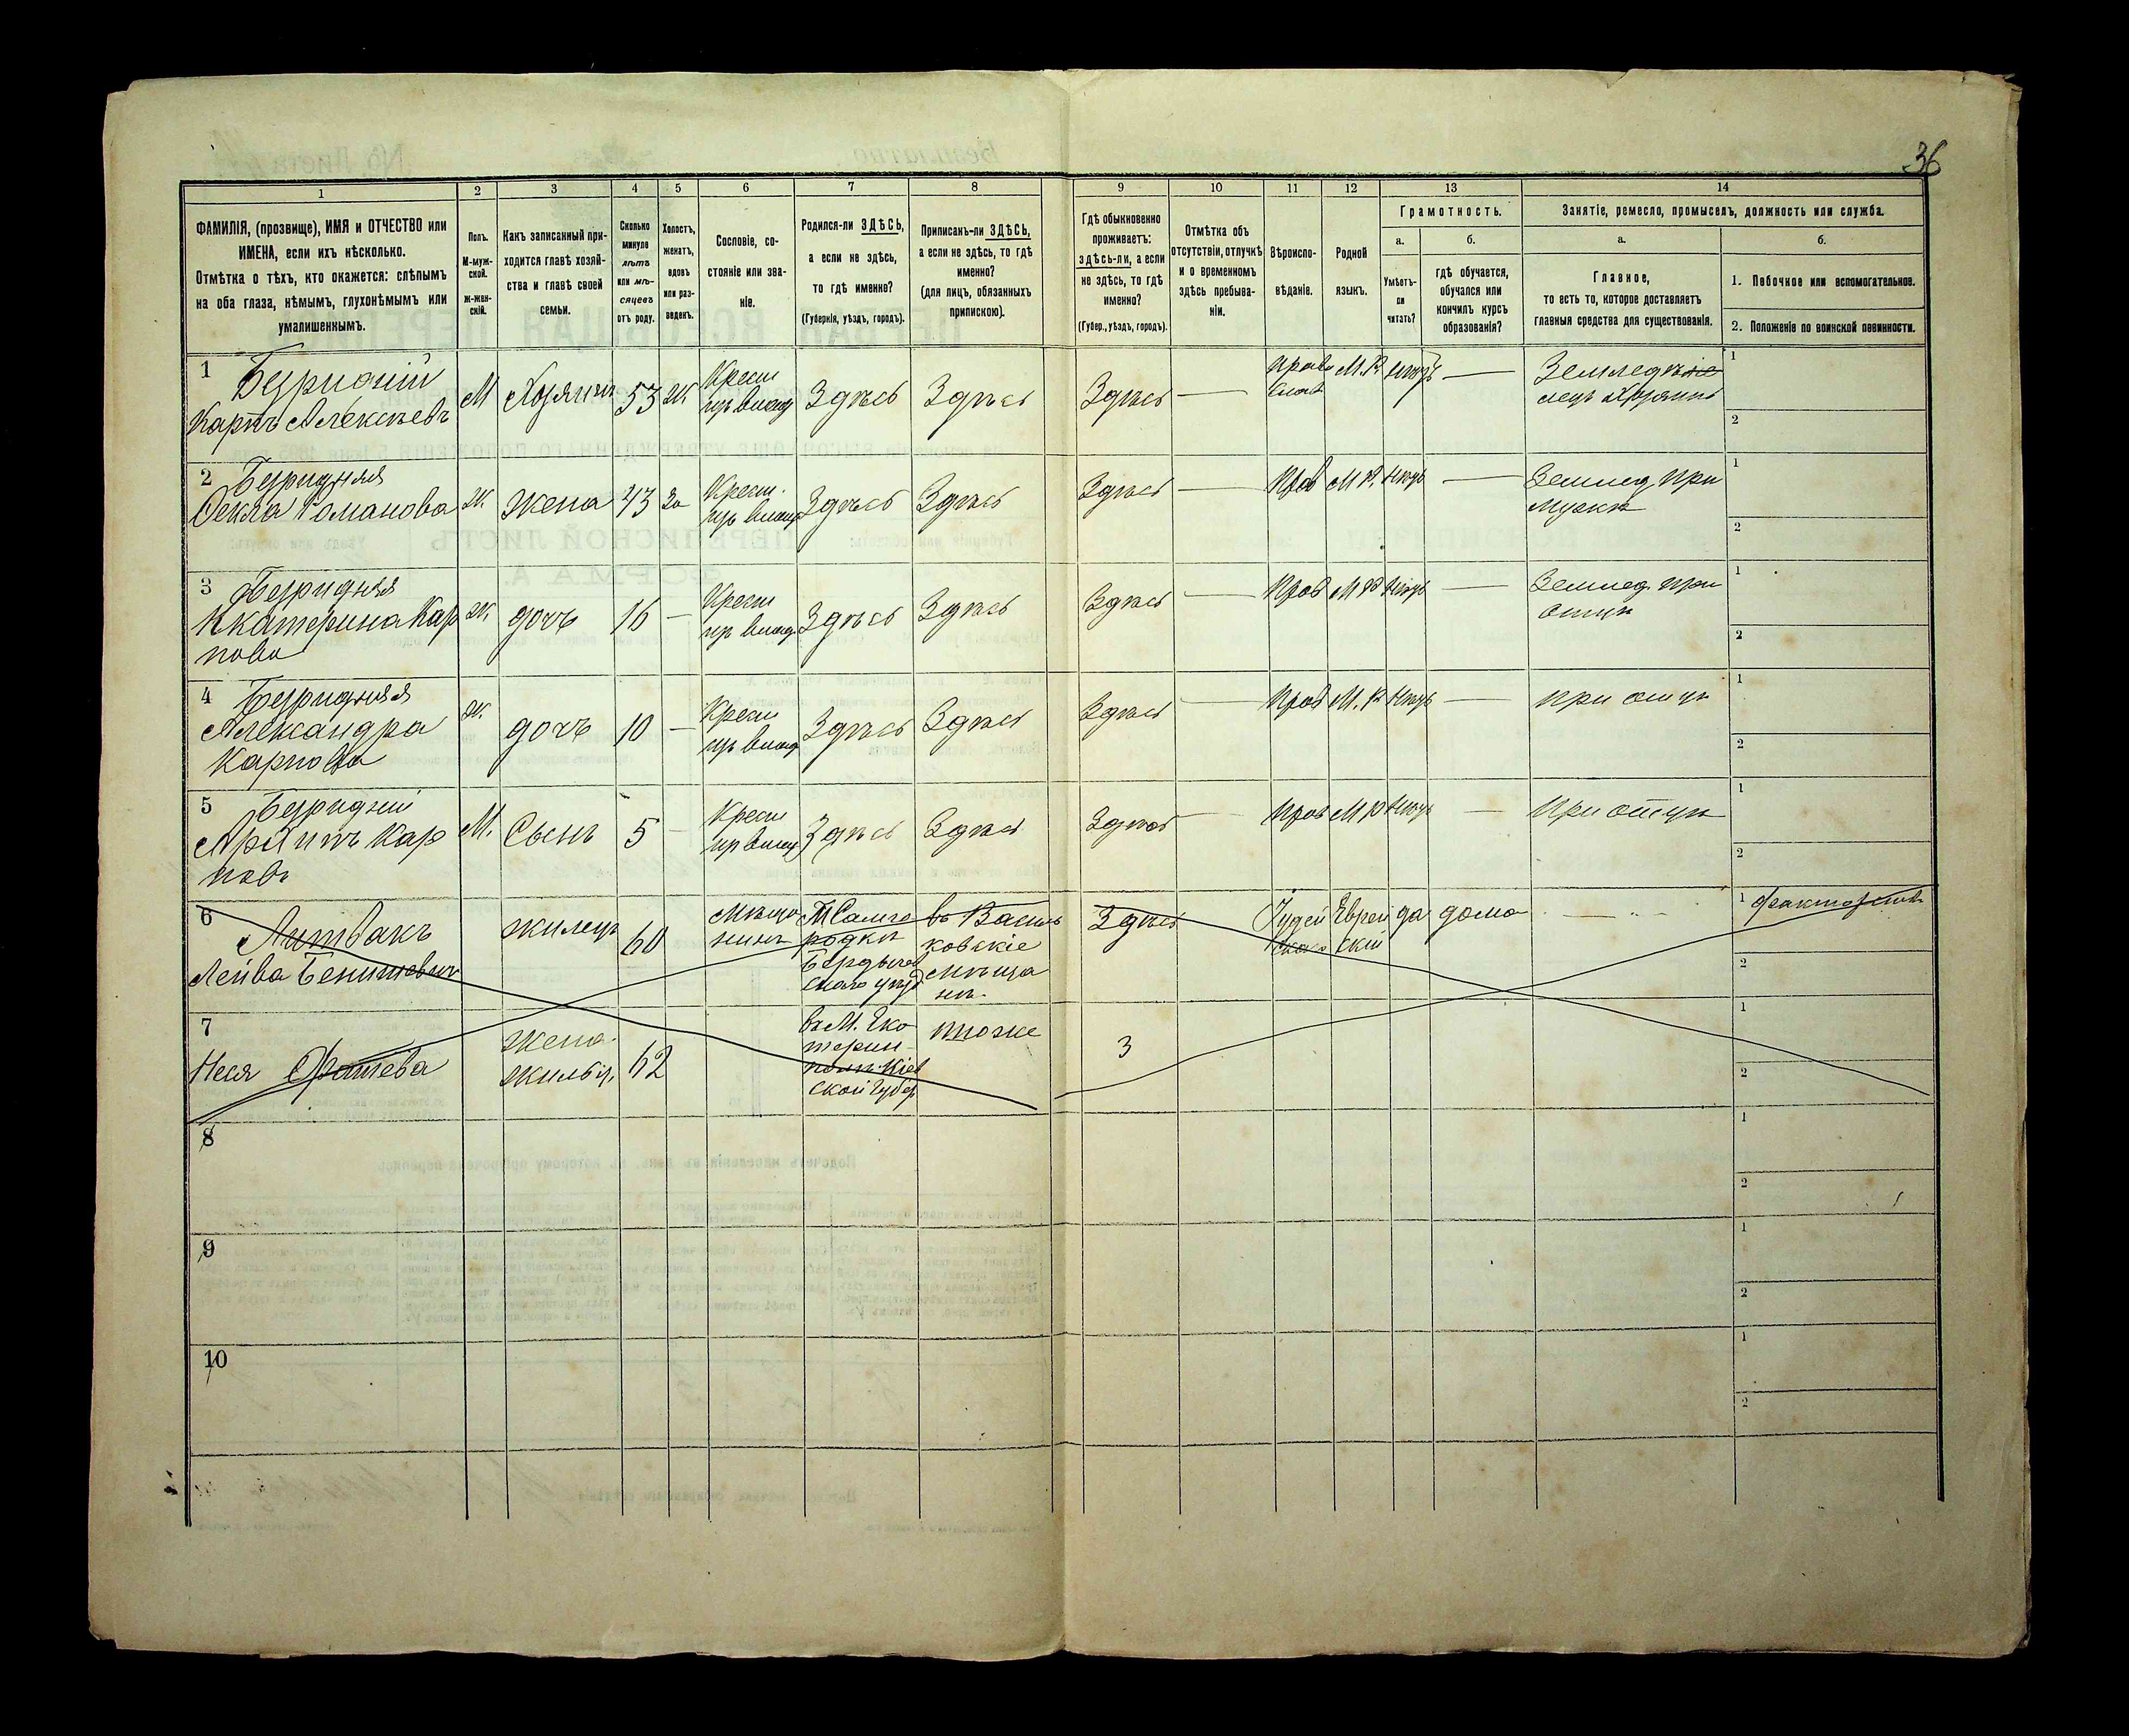 36
1
2
3
4
5
6
7
8
9
10
11
12
13
14
ФАМИЛІЯ, (прозвище), ИМЯ и ОТЧЕСТВО или
ИМЕНА, если ихъ нѣсколько.
Отмѣтка о тѣхъ, кто окажется: слѣпымъ
на оба глаза, нѣмымъ, глухонѣмымъ или
умалишеннымъ.
Полъ.
М-муж-
ской.
Ж-жен-
скій.
Какъ записанный при-
ходится главѣ хозяй-
ства и главѣ своей
семьи.
Сколько
минуло
лѣтъ
или мѣ-
сяцевъ
отъ роду.
Холостъ,
женатъ,
вдовъ
или раз-
веденъ.
Сословіе, со-
стояніе или зва-
ніе.
Родился-ли ЗДѢСЬ,
а если не здѣсь,
то гдѣ именно?
(Губернія, уѣздъ, городъ).
Приписанъ-ли ЗДѢСЬ,
а если не здѣсь, то гдѣ
именно?
(для лицъ, обязанныхъ
припискою).
Гдѣ обыкновенно
проживаетъ:
здѣсь-ли, а если
не здѣсь, то гдѣ
именно?
(Губер., уѣздъ, городъ).
Отмѣтка объ
отсутствіи, отлучкѣ
и о временномъ
здѣсь пребыва-
ніи.
Вѣроиспо-
вѣданіе.
Родной
языкъ.
Грамотность.
а.
Умѣетъ-
ли
читать?
б.
гдѣ обучается,
обучался или
кончилъ курсъ
образованія?
Занятіе, ремесло, промыселъ, должность или служба.
а.
Главное,
то есть то, которое доставляетъ
главныя средства для существованія.
б.
1. Побочное или вспомогательное.
2. Положеніе по воинской повинности.
1
Карпъ Алексѣевъ
М Хозяинъ 53 Ж Здѣсь Здѣсь Здѣсь —
Право
слав
М.Р. нѣтъ —
Хозяинъ
1
2
2
Романова
Ж. жена 43 За Здѣсь Здѣсь Здѣсь — Прав М Р. нѣтъ —
Землед при
мужѣ
1
2
3
Екатерина Кар
пова
Ж. дочь 16 — Здѣсь Здѣсь Здѣсь — Прав М Р нѣтъ —
Землед. при
отцѣ
1
2
4
Александра
Карпова
Ж. дочь 10 — Здѣсь Здѣсь Здѣсь — Прав М.Р нѣтъ — при отцѣ
1
2
5
Кар
повъ
М. Сынъ 5 — Здѣсь Здѣсь Здѣсь — Прав М Р нѣтъ — При отцѣ
1
2
6
Литвакъ
Лейба
жилецъ 60
Мѣща
нинъ
Бердичев
скаго уѣзд
въ Василь
ковскіе
мѣща
не.
Здѣсь
Іудей
Еврей
скій
да дома —
1
2
7
Неся
жена
62
въ М. Ека
терин
Кіев
ской Губер
тоже
3
1
2
8
1
2
9
1
2
10
1
2